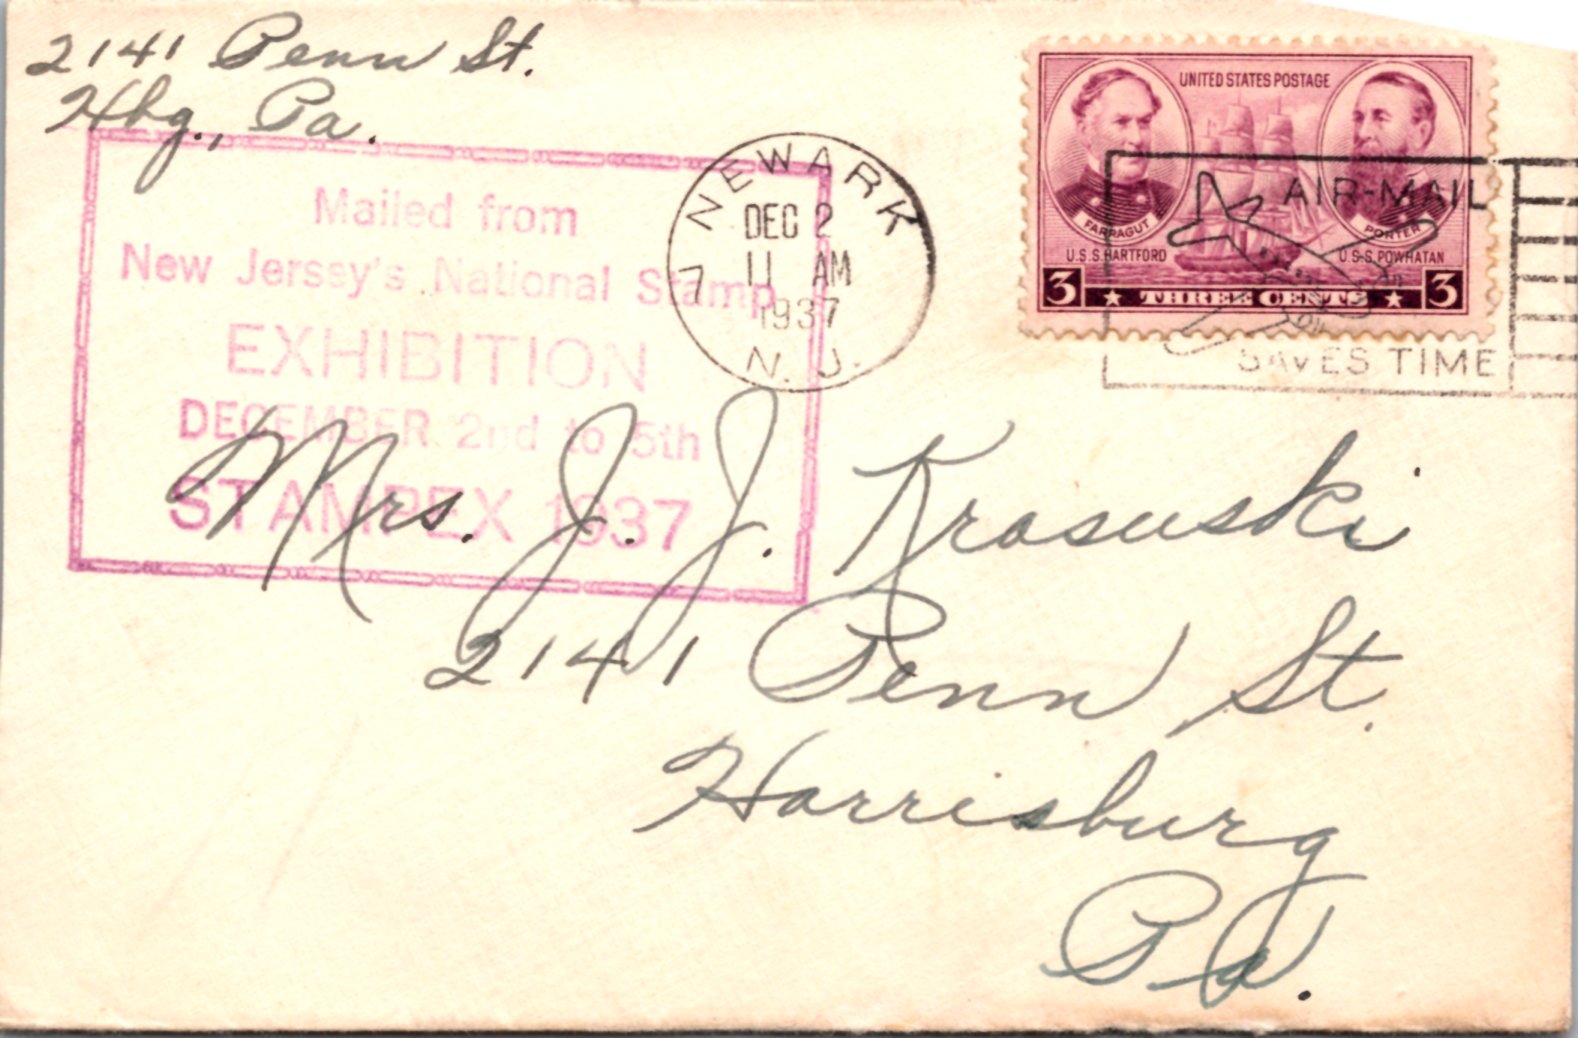 2141 Penn St.
Hbg., Pa.
Mailed from
New Jerssy's National Stamp
EXHIBITION
DECEMBER 2nd to 5th
STAMPEX 1937
NEWARK
DEC 2
11 AM
1937
N. J.
7
UNITED STATES POSTAGE
FARRAGUT
PORTER
U.S.S. HARTFORD
U.S.S. POWHATAN
3 THREE CENTS 3
AIR-MAIL
SAVES TIME
Mrs. J. J. Krasuski
2141 Penn St.
Harrisburg
Pa.